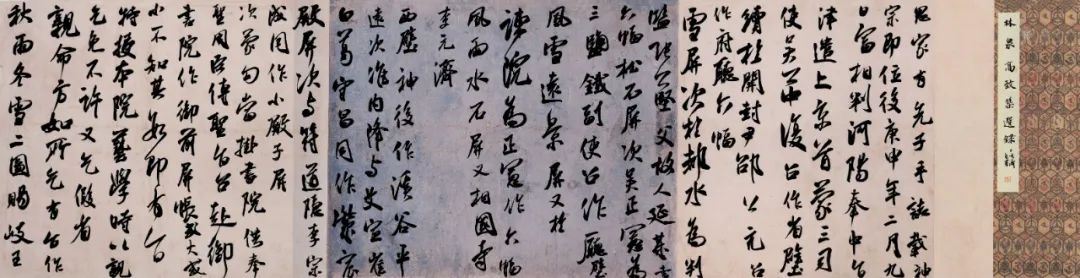 林泉高致集選錄
思家有先子手誌載神
宗即位後庚申年二月九
日富相判河陽奉中旨
津遣上京首蒙三司
使吳公中復召作省壁
續於開封尹邵公亢召
作府廳六幅
雪屏次於都水為判
監張公堅父故人延某畫
六幅松石屏次吳正憲為
三鹽鐵副使召作廳壁
風雪遠景屏又於
諫院為正憲作六幅
風雨水石屏又相國寺
李元濟
西壁神後作溪谷平
遠次準內降與艾宣崔
白葛守昌同作紫宸
殿屏次與符道隱李宗
成同作小殿子屏
次蒙勾當掛書院供奉
聖周臣傳聖旨召赴御
書院作御前屏帳或大或
小不知其數即有旨
特授本院藝學時以親
乞免不許又乞假省
親命方如所乞有旨作
秋雨冬雪二圖賜岐王